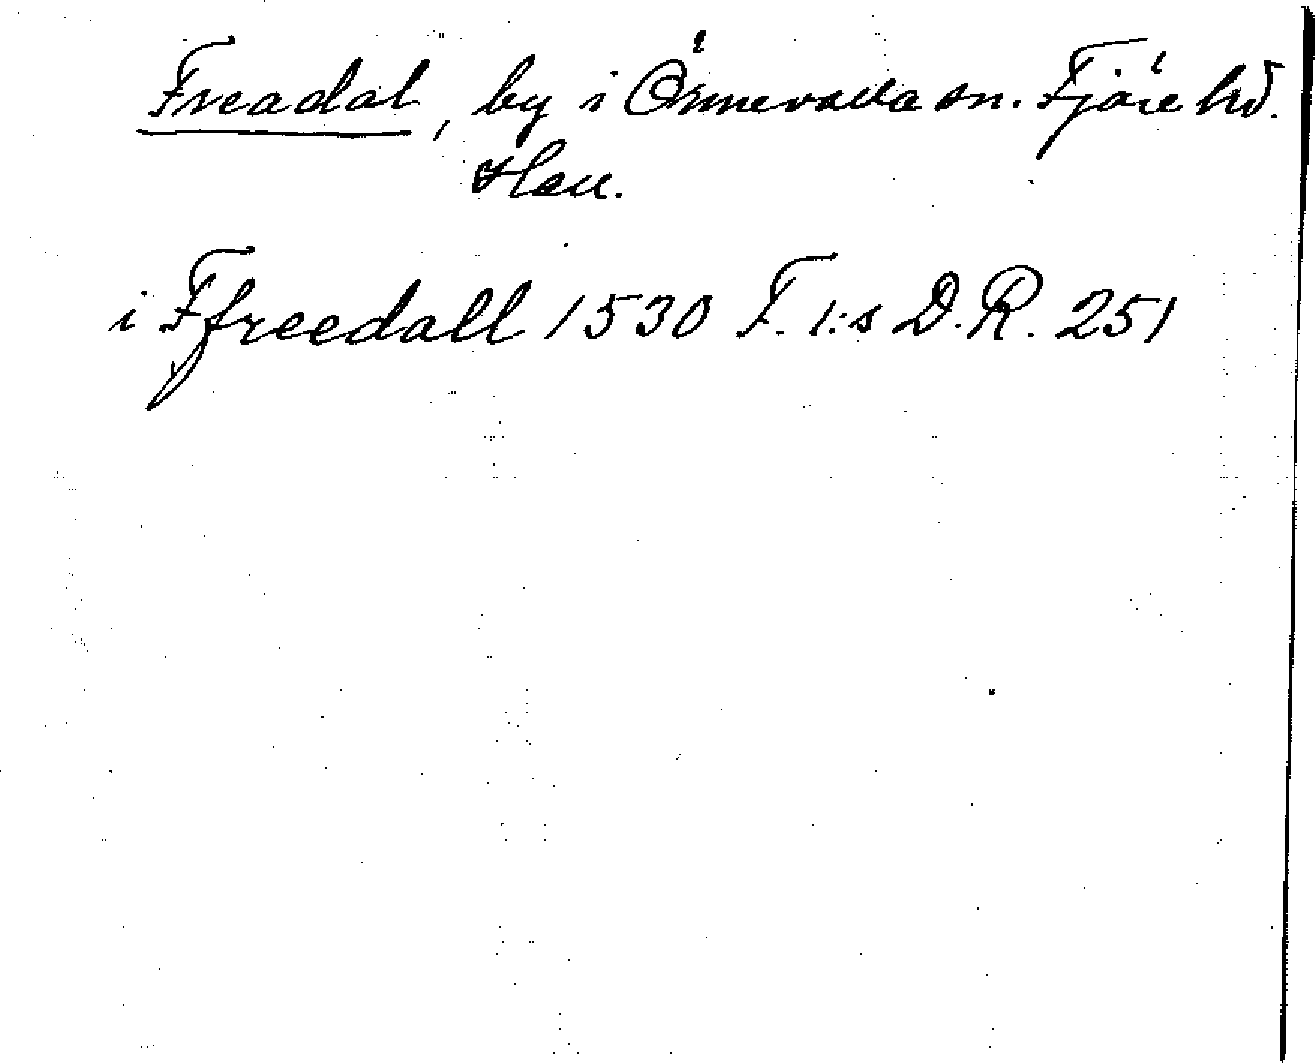 Freadal, by i Önnevalla sn. Fjäre hd.
Hall.
i Ffreedall 1530 F. 1:s D.R. 251